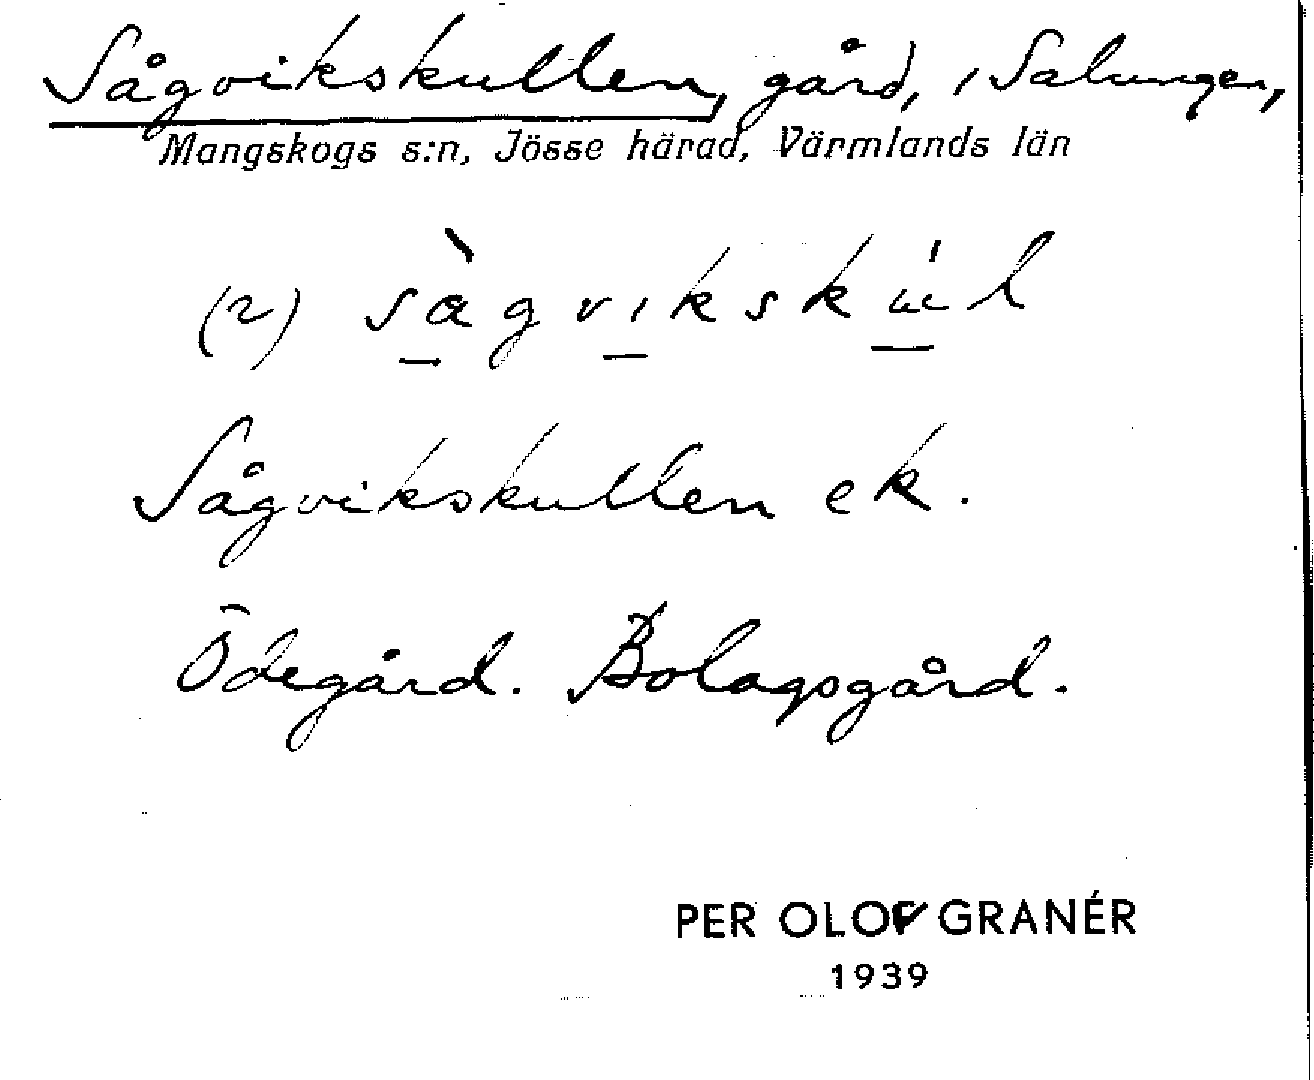 Sågvikskullen, gård, i Salungen,
Mangskogs s:n, Jösse härad, Värmlands län
(2) sàgvikskúl
Sågvikskullen ek.
Ödegård. Bolagsgård.
PER OLOF GRANÉR
1939